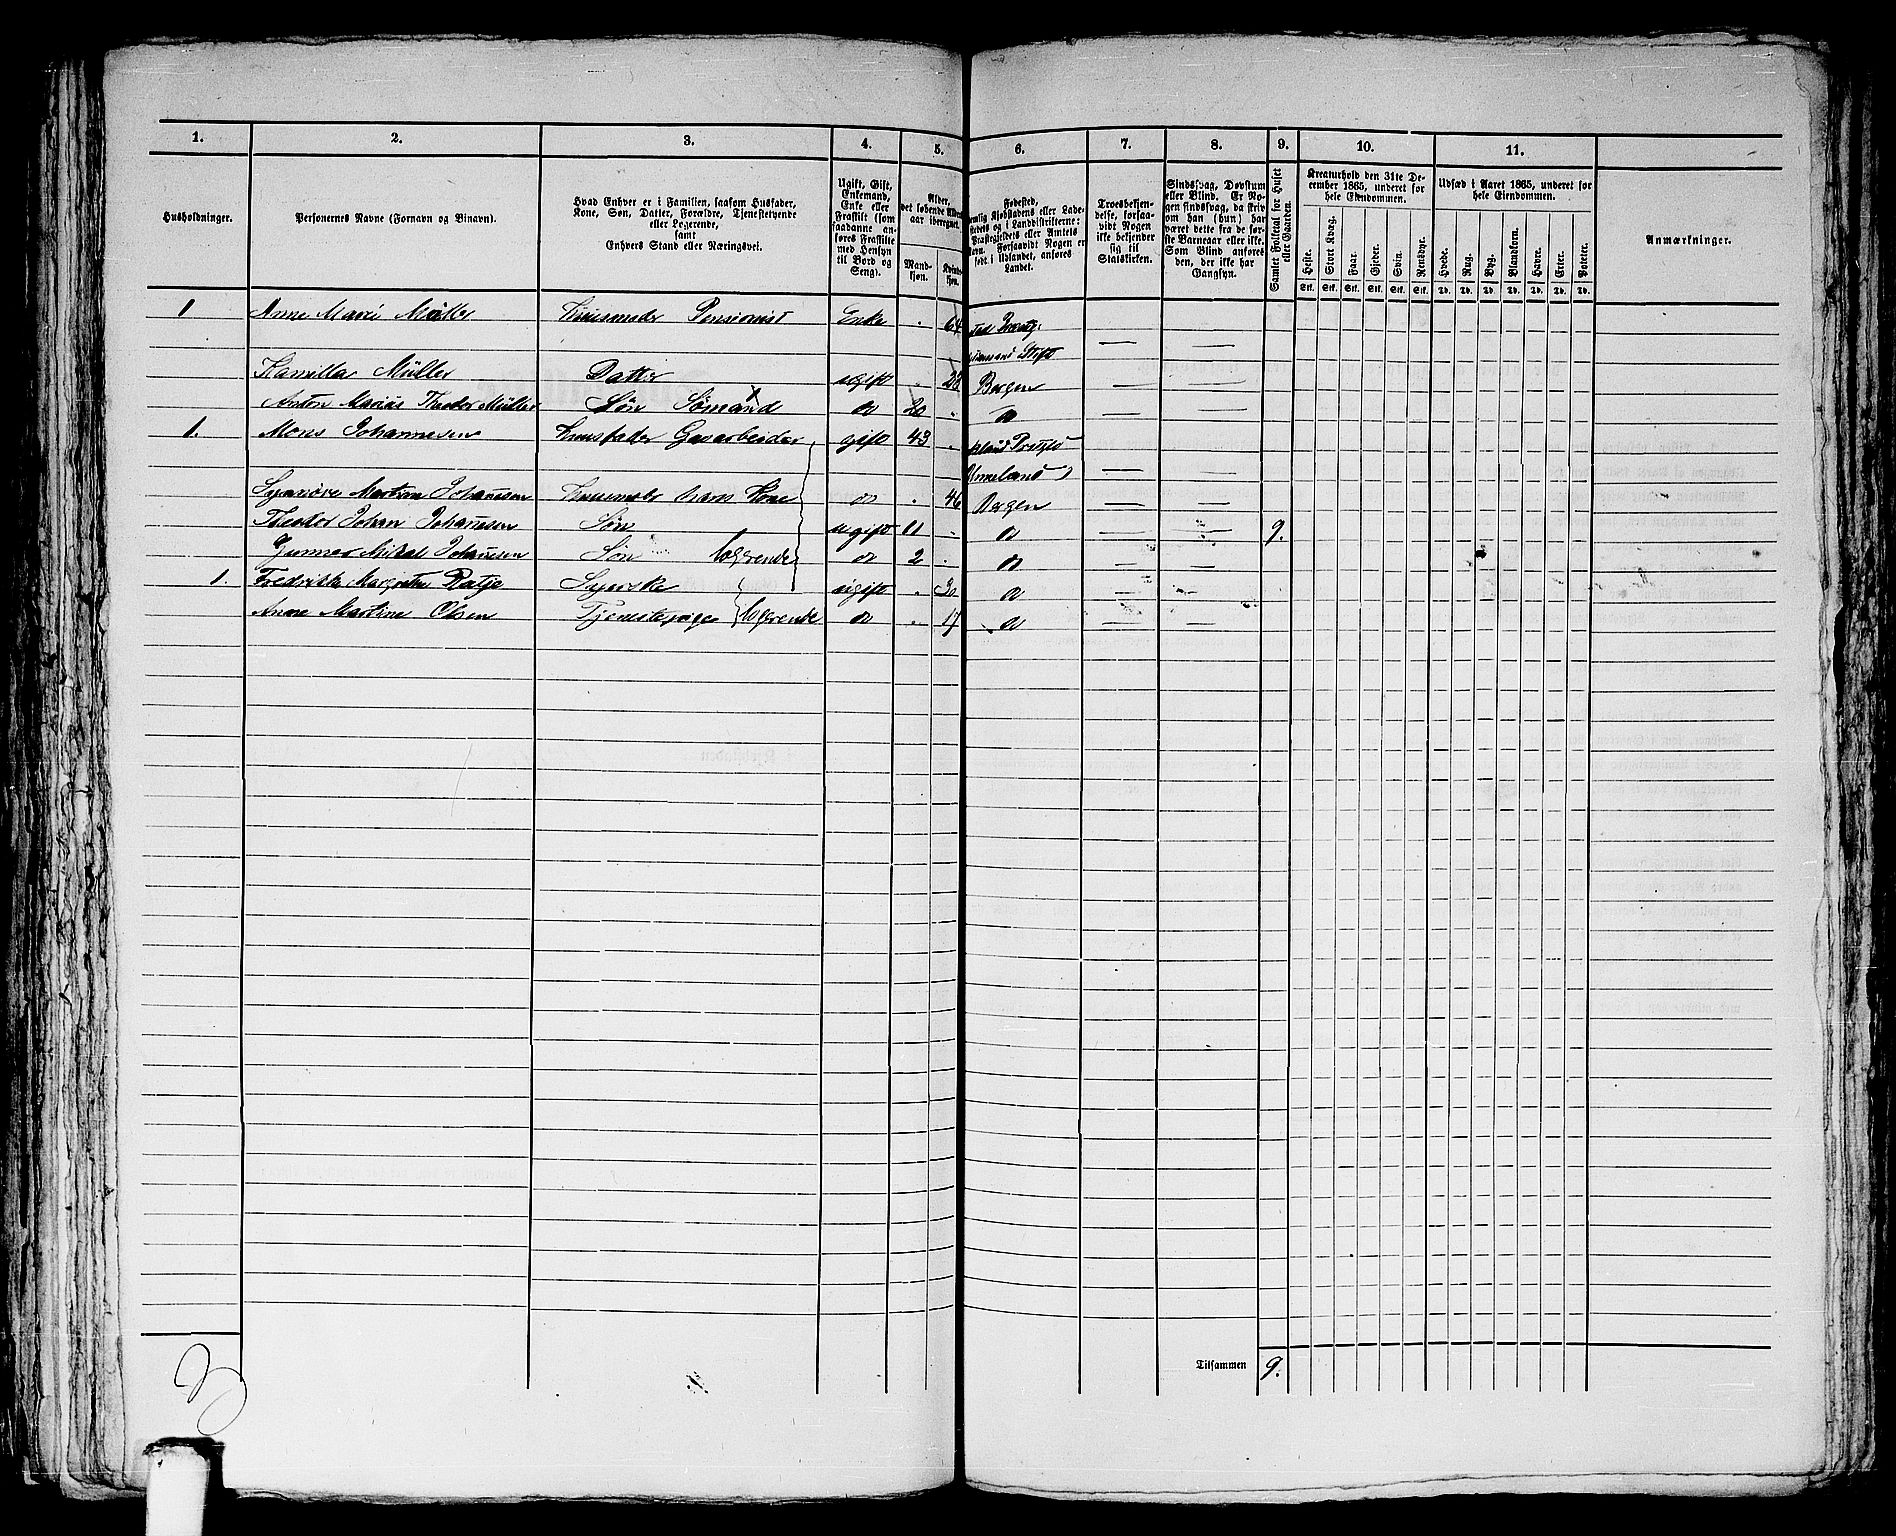 1. 2. 3. 4. 5. 6. 7. 8. 9. 10. 11.
Husholdninger.
Personernes Navne (Fornavn og Binavn).
Hvad Enhver er i Familien, saasom Husfader,
Kone, Søn, Datter, Forældre, Tjenestetyende
eller Logerende,
samt
Enhvers Stand eller Næringsvei.
Ugift, Gift,
Enkemand,
Enke eller
Fraskilt (som
saadanne an-
føres Fraskilte
med Hensyn
til Bord og
Seng).
Alder,
det løbende Alders-
aar iberegnet.
Mand-
kjøn.
Kvinde-
kjøn.
Fødested,
Forsaavidt Nogen er
født i Udlandet, anføres
Landet.
Troesbekjen-
delse, forsaa-
vidt Nogen
ikke bekjender
sig til
Statskirken.
Sindssvag, Døvstum
eller Blind. Er No-
gen sindssvag, da skriv
om han (hun) har
været dette fra de før-
ste Barneaar eller ikke.
Som Blind anføres
den, der ikke har
Gangsyn.
Samlet Folketal for Huset
eller Gaarden.
Kreaturhold den 31te De-
cember 1865, underet for
hele Eiendommen.
Heste. Stort Kvæg. Faar. Gjeder. Svin. Rensdyr.
Stk. Stk. Stk. Stk. Stk. Stk.
Udsæd i Aaret 1865, underet for
hele Eiendommen.
Hvede. Rug. Byg. Blandkorn. Havre. Erter. Poteter.
Td. Td. Td. Td. Td. Td. Td.
Anmærkninger.
1 Anne Marie Müller Huusmoder Pensionist Enke " 64
Stift
Kamilla Müller Datter ugift " 23 Bergen
Anton Marius Theodor Müller Søn Sømand do 20 " do
1. Mons Johannesen Huusfader Gasarbeider gift 43 "
Martine Johannesen Huusmoder hans Kone do " 46 Bergen
Theodor Johan Johannesen Søn ugift 11 " do 9.
Gunner Mikal Johannesen Søn logerende do 2 " do
1. Fredrikke Margrethe Patje Syerske ugift " 30 do
Anne Martine Olsen Tjenestepige logerende do " 17 do
Tilsammen 9.